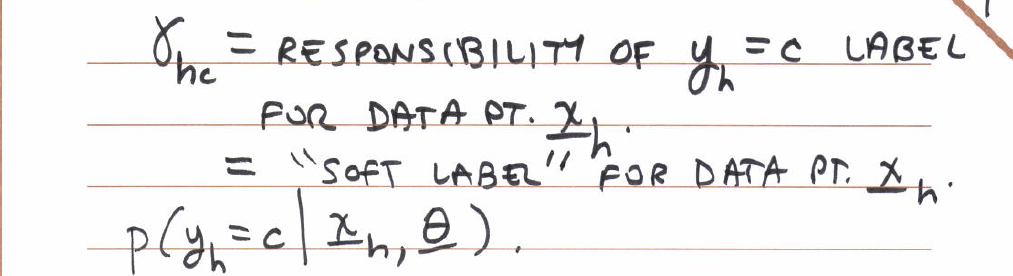 γ_hc = RESPONSIBILITY OF y_h = c LABEL
FOR DATA PT. x_h.
= "SOFT LABEL" FOR DATA PT. x_h.
p(y_h = c | x_h, θ).